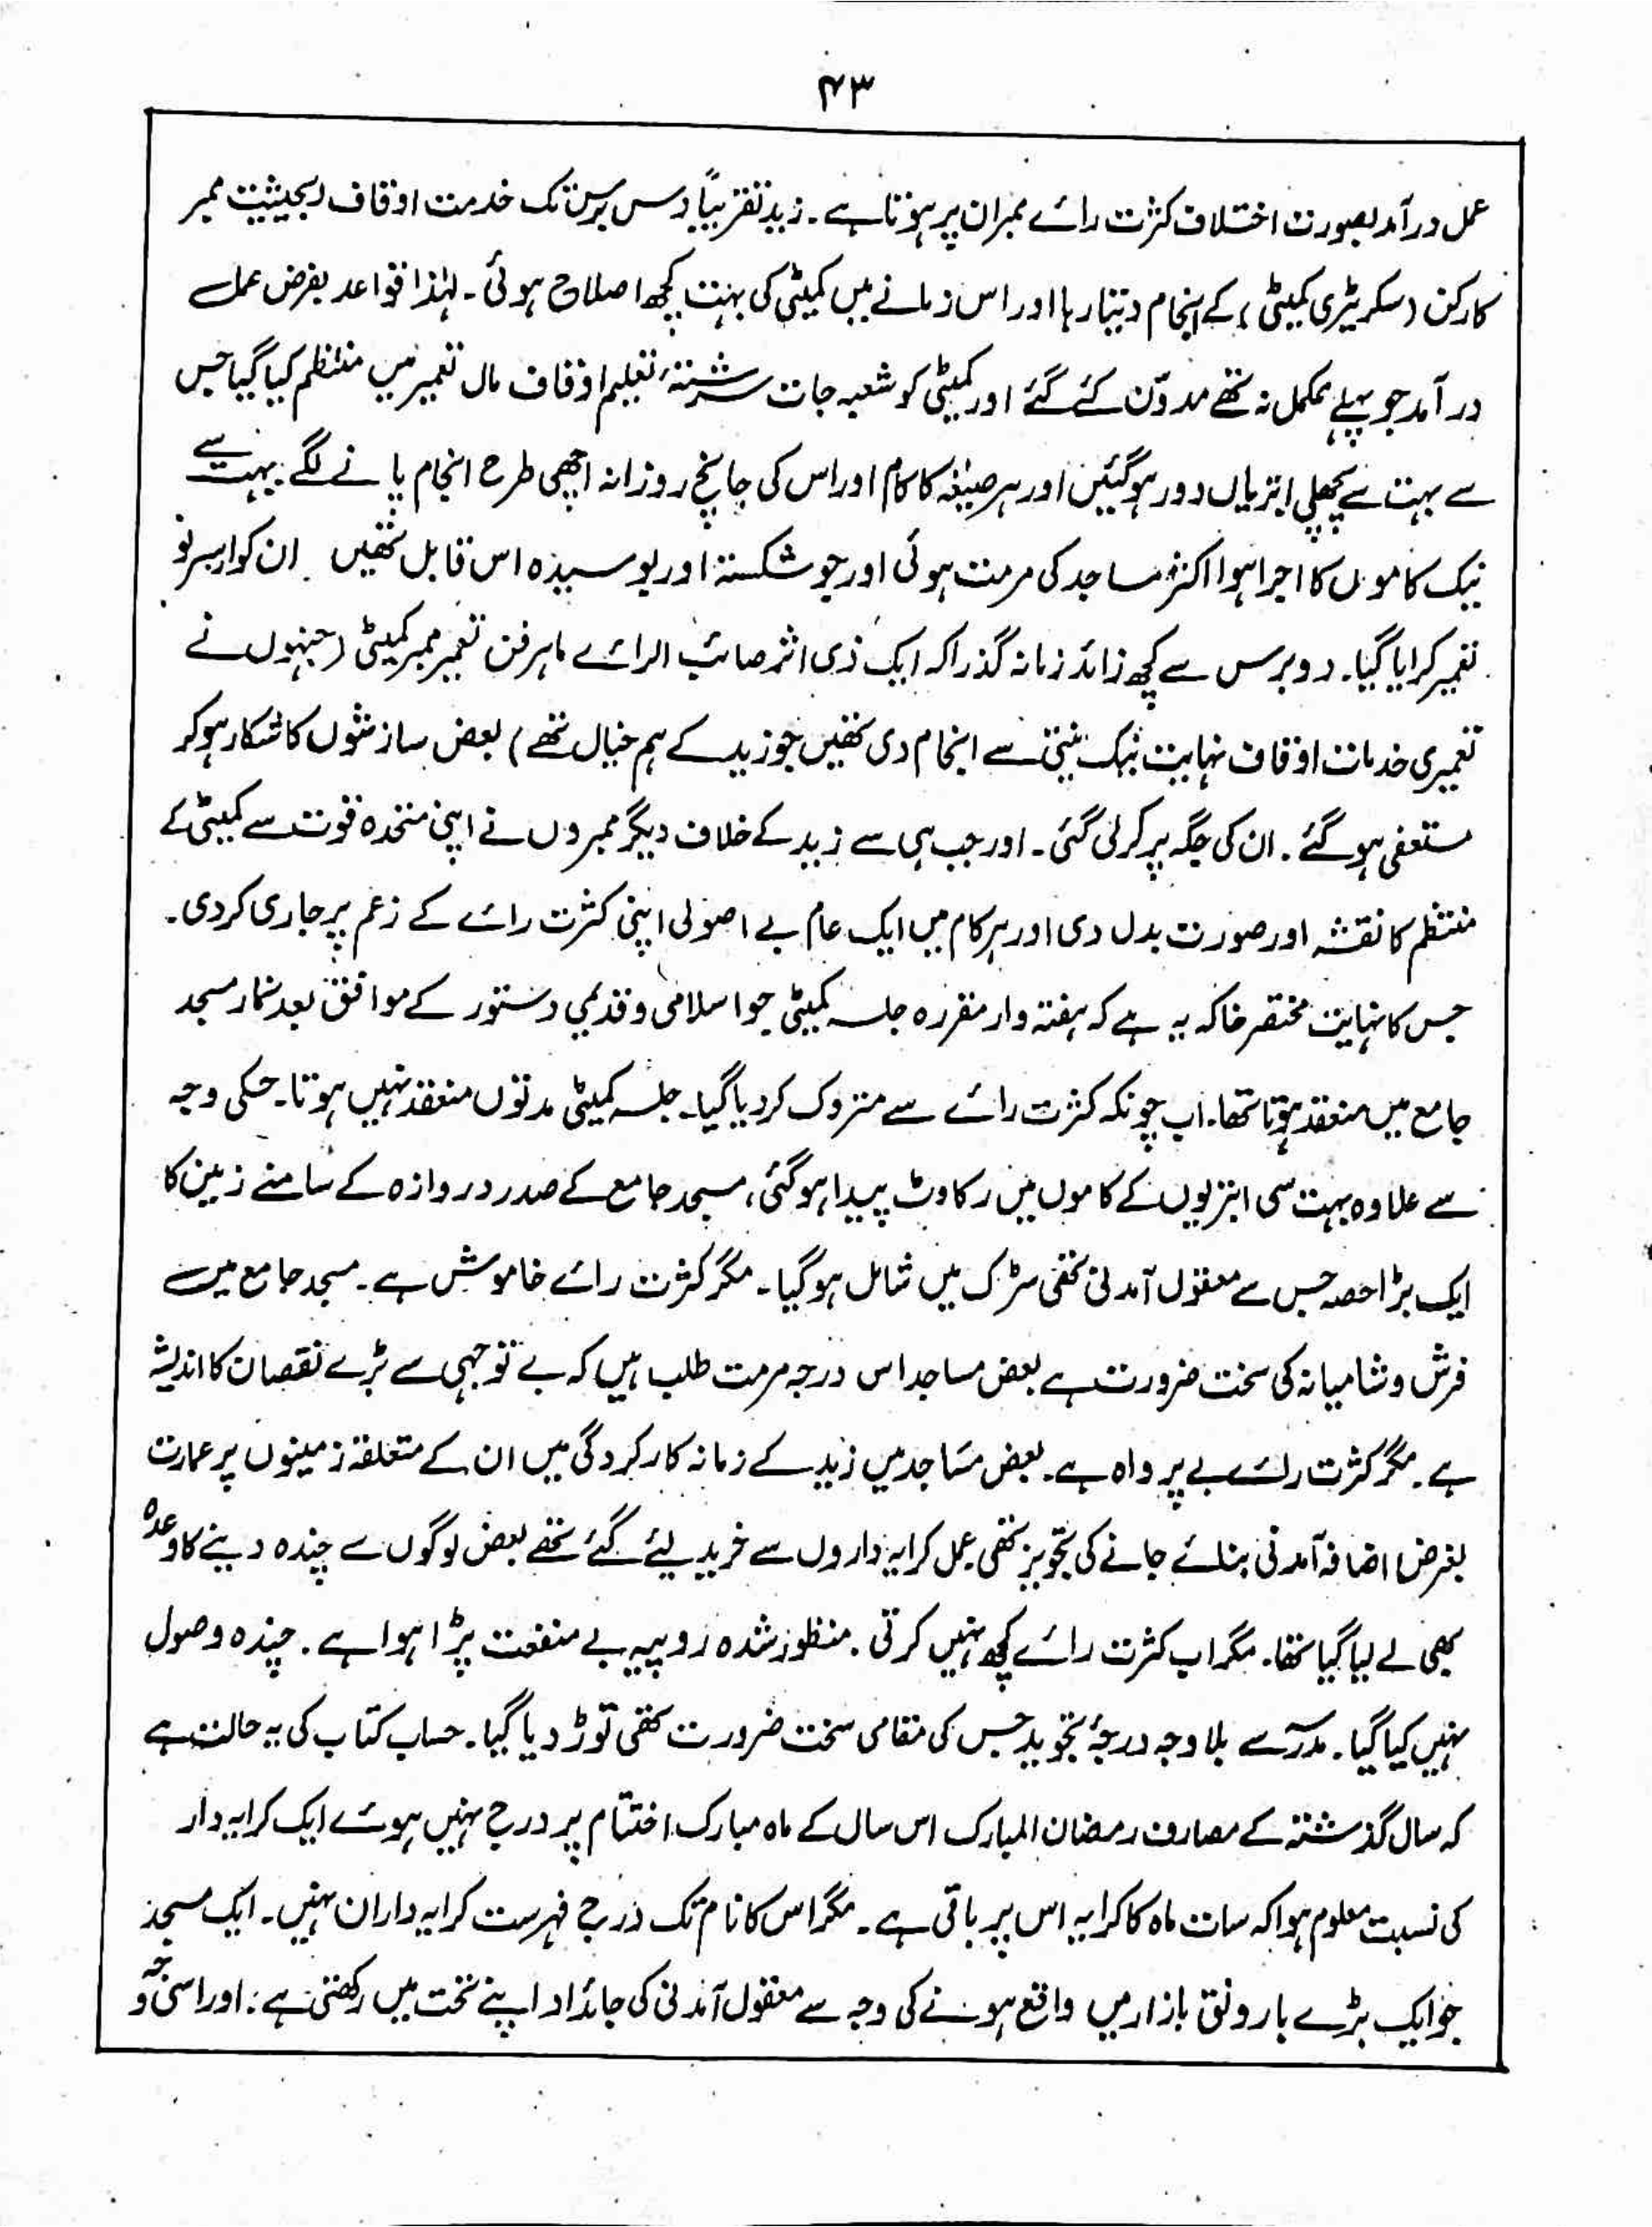 ۴۳
عمل درآمد بصورت اختلاف کثرت رائے ممبران پر ہوتا ہے۔ زید تقریباً دس برس تک خدمت اوقاف (بحیثیت ممبر
کارکن (سکریٹری کمیٹی) کے انجام دیتا رہا اور اس زمانے میں کمیٹی کی بہت کچھ اصلاح ہوئی۔ لہٰذا قواعد بغرض عمل
درآمد جو پہلے مکمل نہ تھے مدوّن کئے گئے اور کمیٹی کو شعبہ جات سررشتۂ تعلیم اوقاف مال تعمیر میں منتظم کیا گیا جس
سے بہت سے پچھلی ابتریاں دور ہوگئیں اور ہر صیغہ کا کام اور اس کی جانچ روزانہ اچھی طرح انجام پانے لگے بہت سے
نیک کاموں کا اجرا ہوا اکثر مساجد کی مرمت ہوئی اور جو شکستہ اور بوسیدہ اس قابل تھیں ان کو ازسرنو
تعمیر کرایا گیا۔ دو برس سے کچھ زائد زمانہ گذرا کہ ایک ذی اثر صائب الرائے ماہر فن تعمیر ممبر کمیٹی (جنہوں نے
تعمیری خدمات اوقاف نہایت نیک نیتی سے انجام دی تھیں جو زید کے ہم خیال تھے) بعض سازشوں کا شکار ہوکر
مستعفی ہوگئے۔ ان کی جگہ پر کرلی گئی۔ اور جب ہی سے زید کے خلاف دیگر ممبروں نے اپنی متحدہ قوت سے کمیٹی کے
منتظم کا نقشہ اور صورت بدل دی اور ہر کام میں ایک عام بے اصولی اپنی کثرت رائے کے زعم پر جاری کردی۔
جس کا نہایت مختصر خاکہ یہ ہے کہ ہفتہ وار مقررہ جلسہ کمیٹی جو اسلامی و قدیمی دستور کے موافق بعد نماز مسجد
جامع میں منعقد ہوتا تھا۔ اب چونکہ کثرت رائے سے متروک کردیا گیا۔ جلسہ کمیٹی مدتوں منعقد نہیں ہوتا۔ جسکی وجہ
سے علاوہ بہت سی ابتریوں کے کاموں میں رکاوٹ پیدا ہوگئی، مسجد جامع کے صدر دروازہ کے سامنے زمین کا
ایک بڑا حصہ جس سے معقول آمدنی تھی سڑک میں شامل ہوگیا۔ مگر کثرت رائے خاموش ہے۔ مسجد جامع میں
فرش و شامیانہ کی سخت ضرورت ہے بعض مساجد اس درجہ مرمت طلب ہیں کہ بے توجہی سے بڑے نقصان کا اندیشہ
ہے۔ مگر کثرت رائے بے پرواہ ہے۔ بعض مساجد میں زید کے زمانہ کارکردگی میں ان کے متعلقہ زمینوں پر عمارت
بغرض اضافہ آمدنی بنائے جانے کی تجویز تھی عمل کرایہ داروں سے خرید لیئے گئے تھے بعض لوگوں سے چندہ دینے کا وعدہ
بھی لے لیا گیا تھا۔ مگر اب کثرت رائے کچھ نہیں کرتی۔ منظور شدہ روپیہ بے منفعت پڑا ہوا ہے۔ چندہ وصول
نہیں کیا گیا۔ مدرسے بلا وجہ درجۂ تجوید جس کی مقامی سخت ضرورت تھی توڑ دیا گیا۔ حساب کتاب کی یہ حالت ہے
کہ سال گذشتہ کے مصارف رمضان المبارک اس سال کے ماہ مبارک اختتام پر درج نہیں ہوئے ایک کرایہ دار
کی نسبت معلوم ہوا کہ سات ماہ کا کرایہ اس پر باقی ہے۔ مگر اس کا نام تک درج فہرست کرایہ داران نہیں۔ ایک مسجد
جو ایک بڑے بارونق بازار میں واقع ہونے کی وجہ سے معقول آمدنی کی جائداد اپنے تحت میں رکھتی ہے: اور اسی وجہ